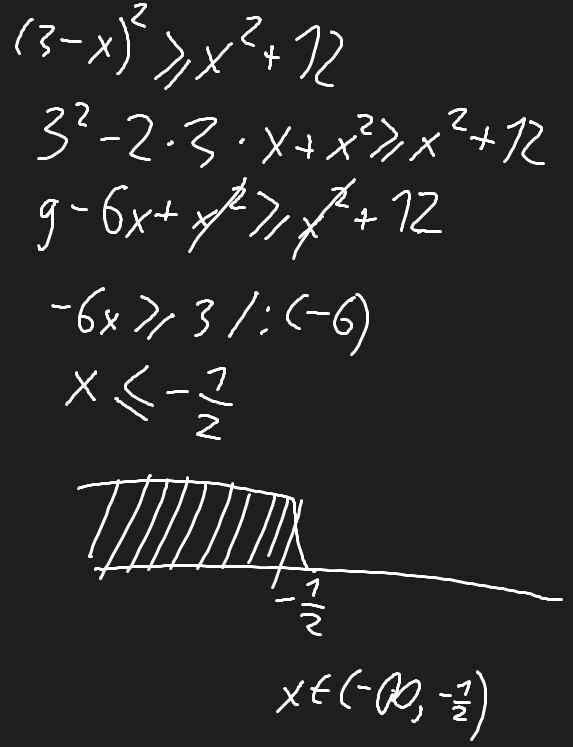 (3-x)² ⩾ x² + 12
3² - 2 · 3 · x + x² ⩾ x² + 12
9 - 6x + x² ⩾ x² + 12
-6x ⩾ 3 / : (-6)
x ⩽ -1/2
-1/2
x ∈ (-∞, -1/2)